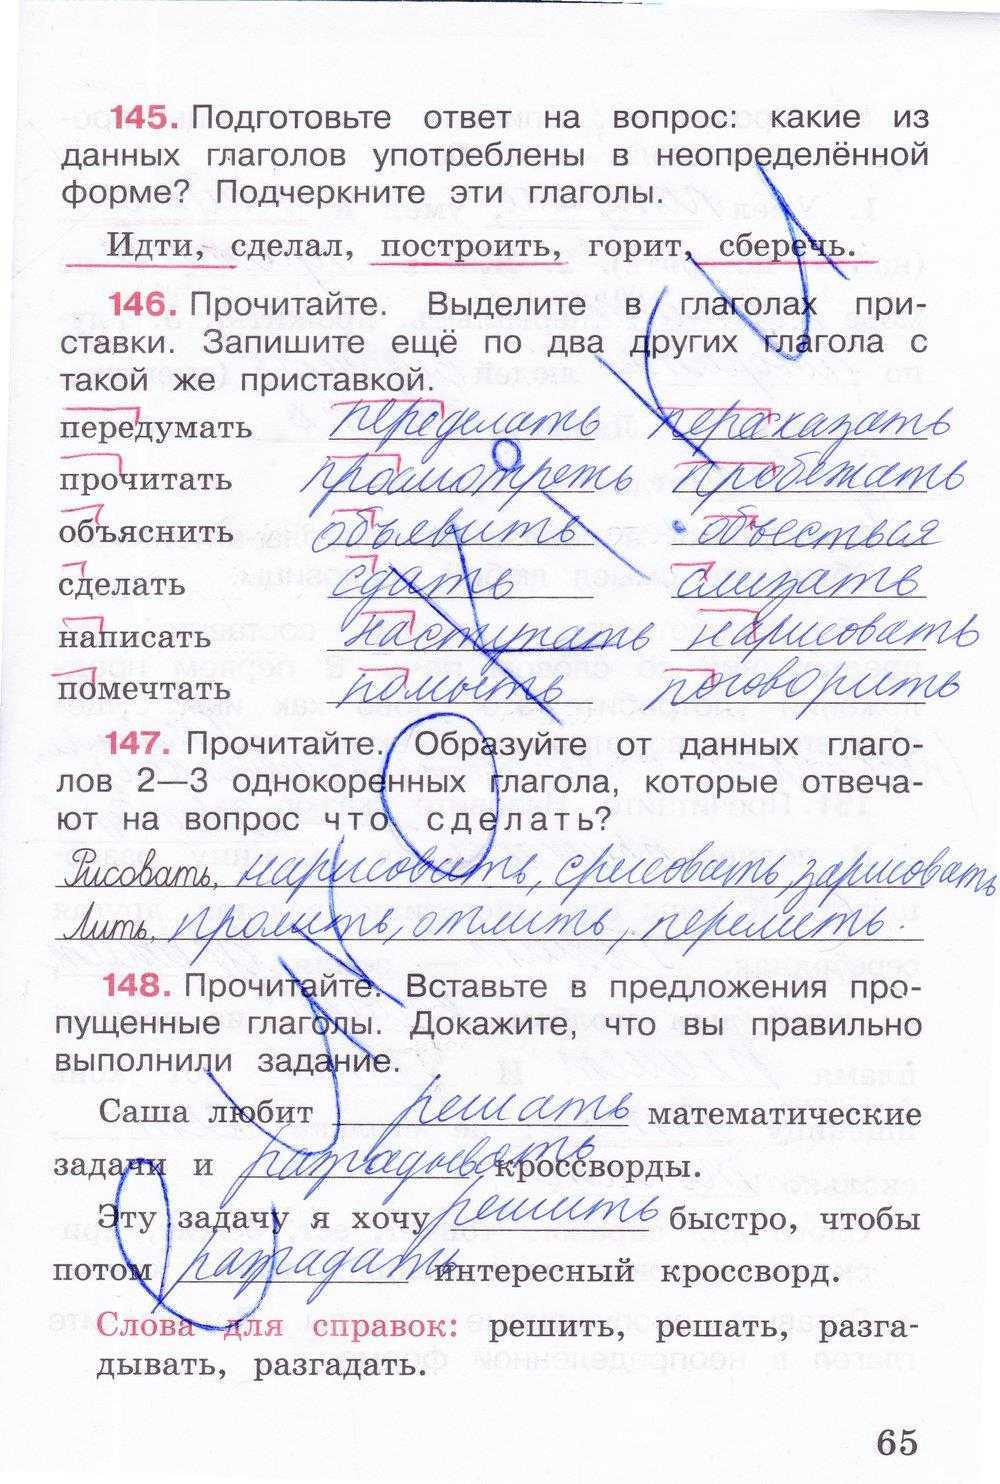 145. Подготовьте ответ на вопрос: какие из
данных глаголов употреблены в неопределённой
форме? Подчеркните эти глаголы.
Идти, сделал, построить, горит, сберечь.
146. Прочитайте. Выделите в глаголах при-
ставки. Запишите ещё по два других глагола с
такой же приставкой.
передумать переделать пересказать
прочитать просмотреть пробежать
объяснить объявить объесться
сделать сдать слизать
написать наступать нарисовать
помечтать помыть поговорить
147. Прочитайте. Образуйте от данных глаго-
лов 2—3 однокоренных глагола, которые отвеча-
ют на вопрос что сделать?
Рисовать, нарисовать, срисовать, зарисовать
Лить, пролить, отлить, перелить.
148. Прочитайте. Вставьте в предложения про-
пущенные глаголы. Докажите, что вы правильно
выполнили задание.
Саша любит решать математические
задачи и разгадывать кроссворды.
Эту задачу я хочу решить быстро, чтобы
потом разгадать интересный кроссворд.
Слова для справок: решить, решать, разга-
дывать, разгадать.
65